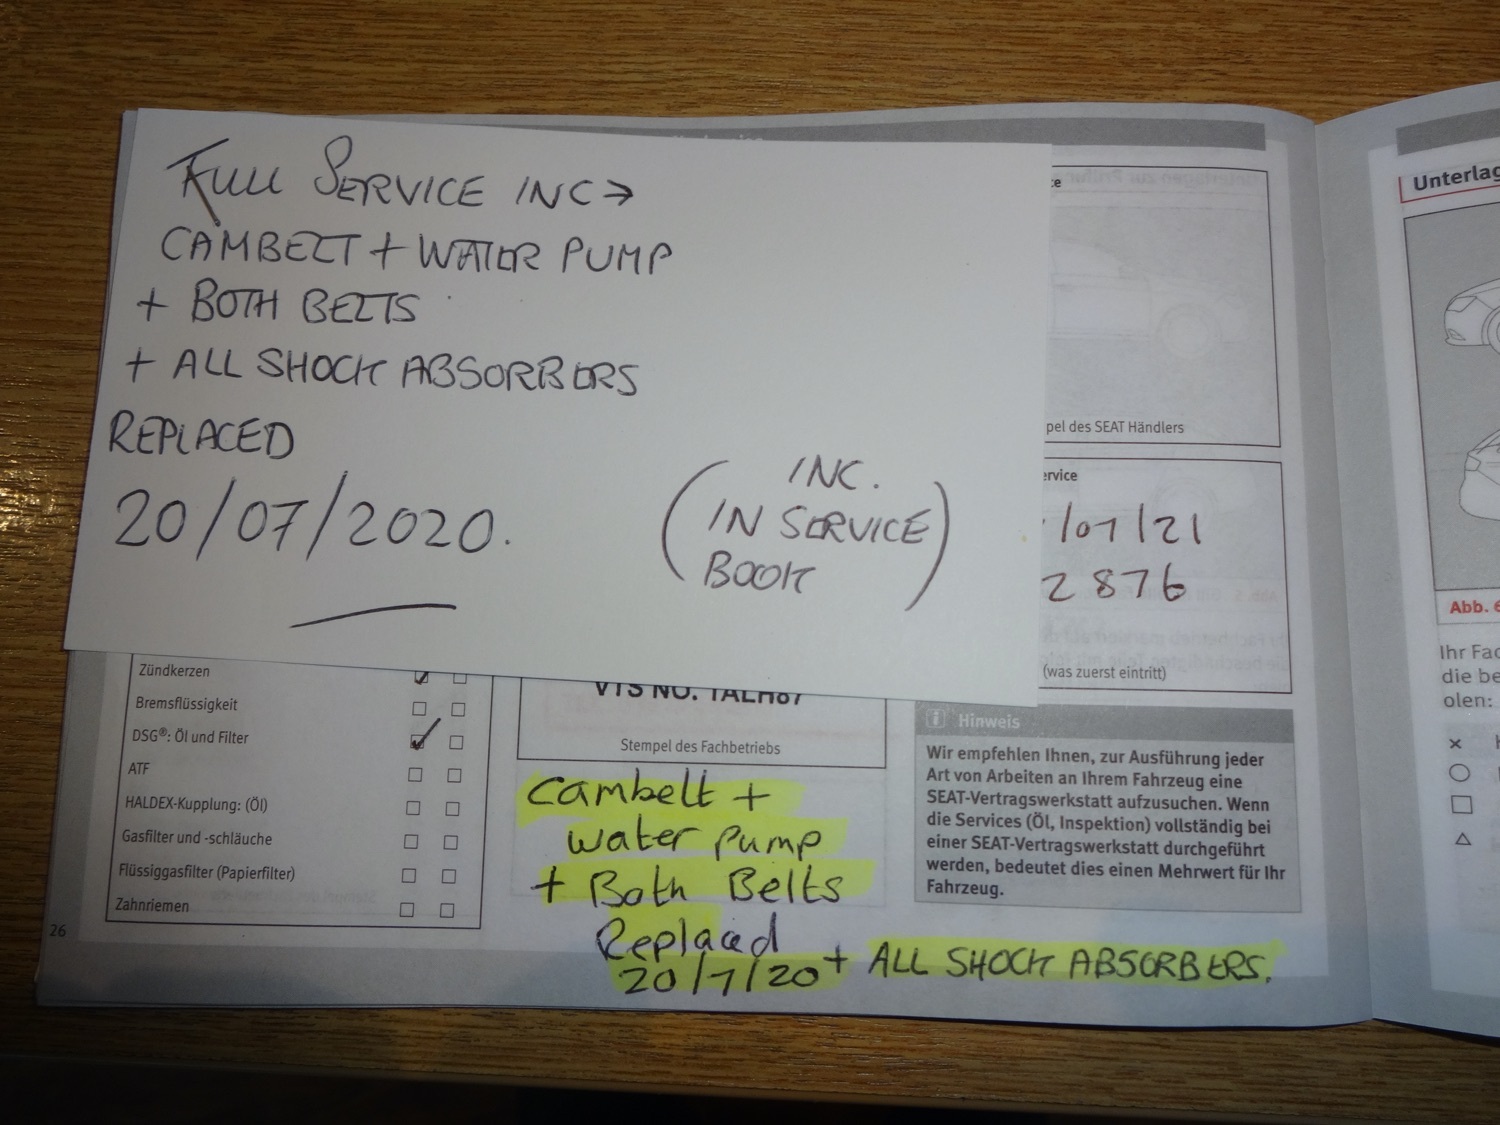 FULL SERVICE INC→
CAMBELT + WATER PUMP
+ BOTH BELTS
+ ALL SHOCK ABSORBERS
REPLACED
20/07/2020.
(INC.
IN SERVICE
BOOK)
pel des SEAT Händlers
ervice
/07/21
2876
(was zuerst eintritt)
Zündkerzen
Bremsflüssigkeit
DSG®: Öl und Filter
ATF
HALDEX-Kupplung: (Öl)
Gasfilter und -schläuche
Flüssiggasfilter (Papierfilter)
Zahnriemen
26
VTS NO. TALH87
Stempel des Fachbetriebs
Cambelt +
water pump
+ Both Belts
Replaced
20/7/20 + ALL SHOCK ABSORBERS.
i Hinweis
Wir empfehlen Ihnen, zur Ausführung jeder
Art von Arbeiten an Ihrem Fahrzeug eine
SEAT-Vertragswerkstatt aufzusuchen. Wenn
die Services (Öl, Inspektion) vollständig bei
einer SEAT-Vertragswerkstatt durchgeführt
werden, bedeutet dies einen Mehrwert für Ihr
Fahrzeug.
Unterlag
Abb. 6
Ihr Fac
die be
olen: